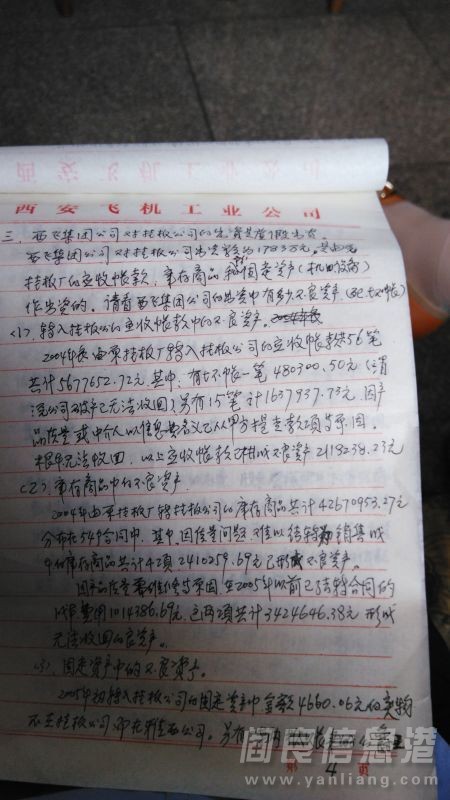 西安飞机工业公司
三、西飞集团公司对挂板公司的出资是虚假出资。
西飞集团公司对挂板公司出资额为1783万元。是由原
挂板厂的应收帐款，库存商品和固定资产(机电设备)
作出资的。请看西飞集团公司的出资中有多少不良资产
(1)、转入挂板公司应收帐款中的不良资产。
2004年末由原挂板厂转入挂板公司的应收帐款共56笔
共计5677652.72元。其中：有坏帐一笔480300.50元(渭
公司破产已无法收回)另有15笔计1637937.73元，因产
品质量或中介人以信息费名义已从甲方提走款项等原因，
根本无法收回。以上应收帐款已形成不良资产2118238.23元
(2)、库存商品中的不良资产
2004年由原挂板厂转挂板公司的库存商品共计42670953.27元
分布在54个合同中，其中：因质量问题，难以结转销售成
本的库存商品共计4项2410259.69元已形成不良资产。
因产品质量等原因，至2005年以前已结转合同的
成本费用1014386.69元，这两项共计3424646.38元形成
无法收回的不良资产。
(3)、固定资产中的不良资产。
2005年初转入挂板公司的固定资产中金额4660.06元的实物
不在挂板公司，而在公司。另有
第 4 页
阎良信息港
www.yanliang.com